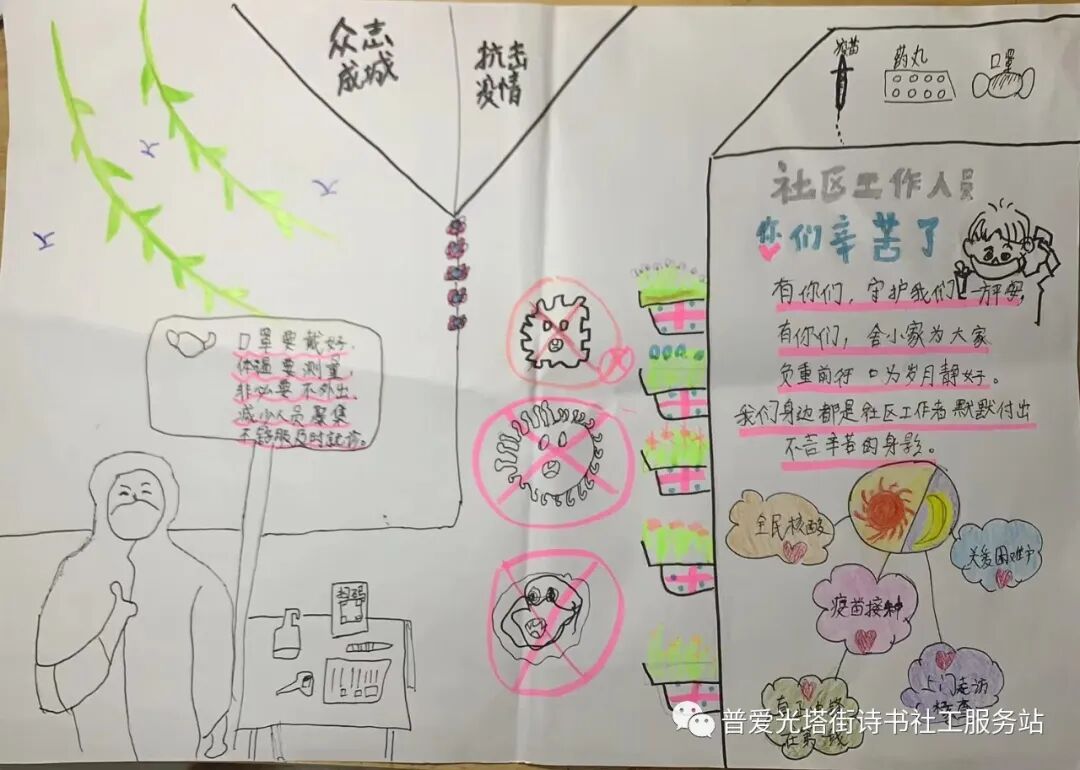 众志
成城
抗击
疫情
疫苗
药丸
口罩
社区工作人员
你们辛苦了
有你们，守护我们一方平安，
有你们，舍小家为大家
负重前行 只为岁月静好。
我们身边都是社区工作者默默付出
不言辛苦的身影。
口罩要戴好，
体温要测量，
非必要不外出，
减少人员聚集
不舒服及时就诊。
全民核酸
关爱困难户
疫苗接种
上门走访
普爱光塔街诗书社工服务站